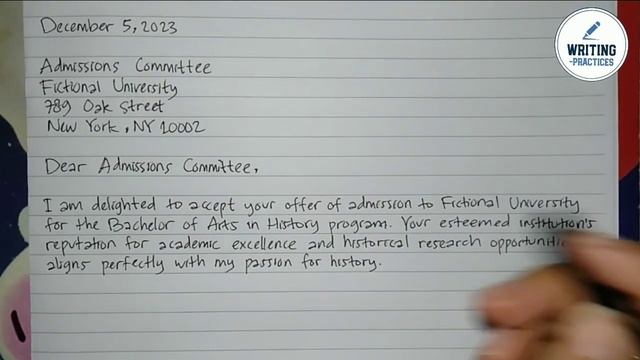 December 5, 2023
WRITING
-PRACTICES
Admissions Committee
Fictional University
789 Oak Street
New York, NY 10002
Dear Admissions Committee,
I am delighted to accept your offer of admission to Fictional University
for the Bachelor of Arts in History program. Your esteemed institution's
reputation for academic excellence and historical research
aligns perfectly with my passion for history.